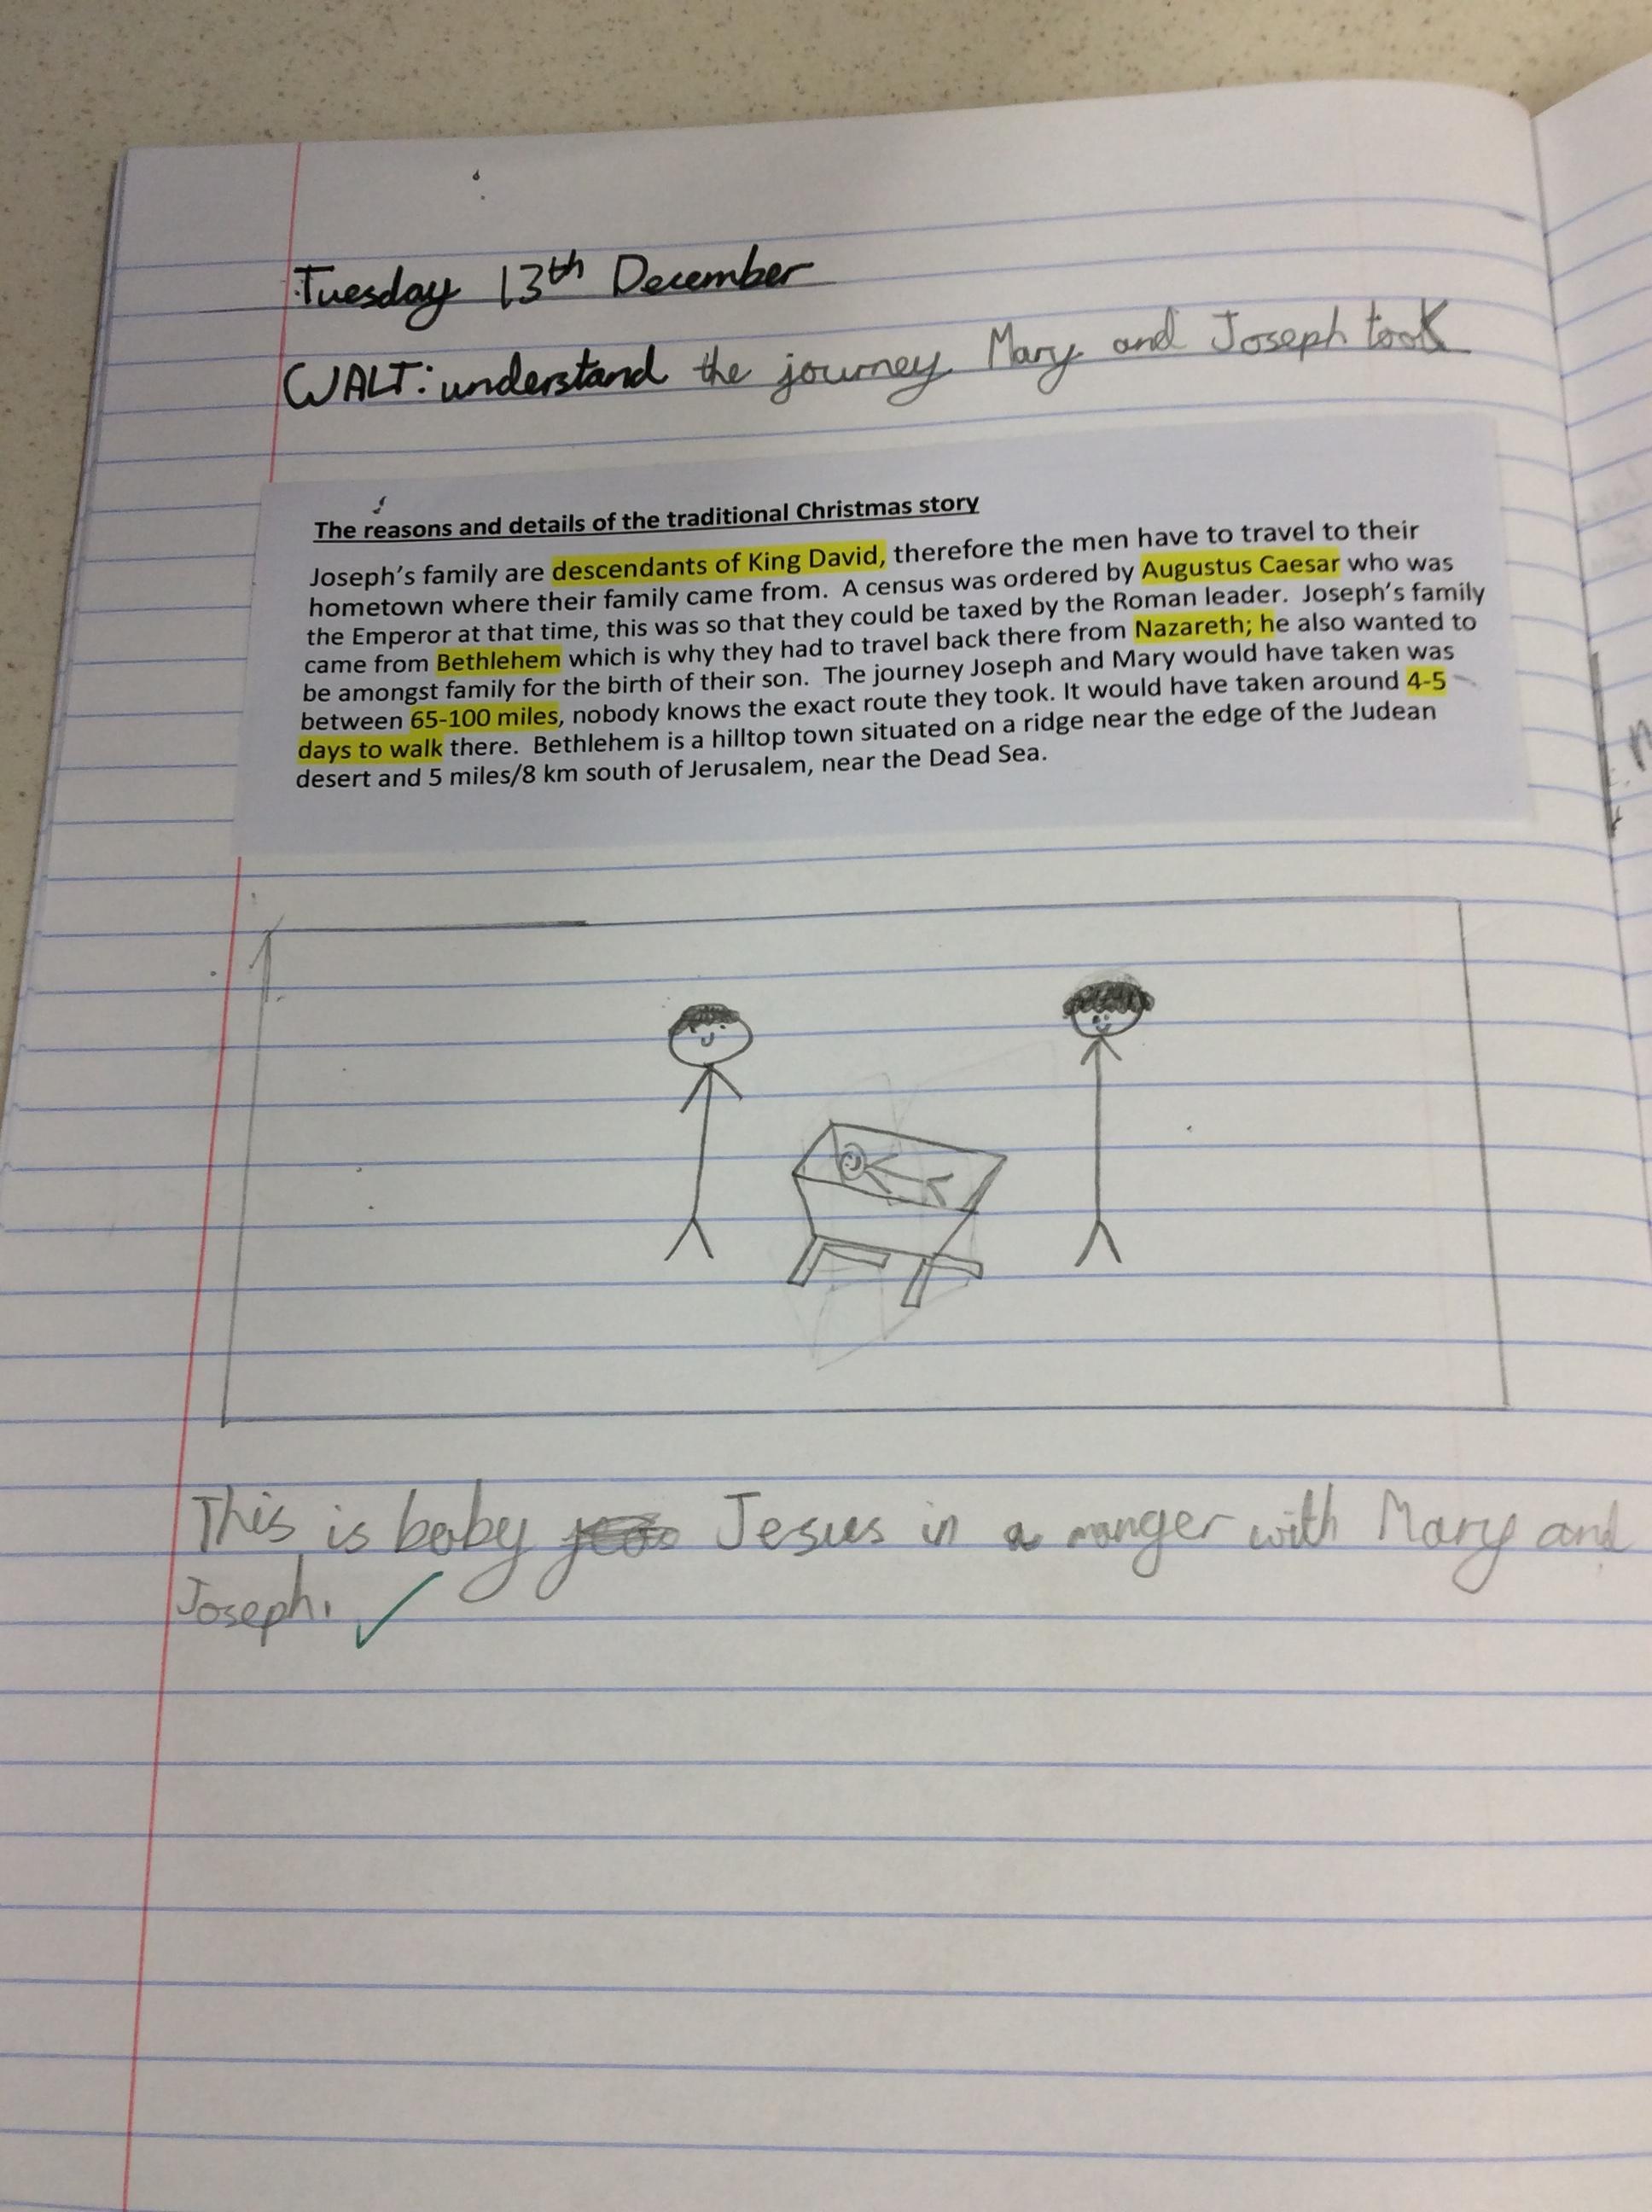 Tuesday 13th December
WALT: understand the journey Mary and Joseph took
The reasons and details of the traditional Christmas story
Joseph's family are descendants of King David, therefore the men have to travel to their
hometown where their family came from. A census was ordered by Augustus Caesar who was
the Emperor at that time, this was so that they could be taxed by the Roman leader. Joseph's family
came from Bethlehem which is why they had to travel back there from Nazareth; he also wanted to
be amongst family for the birth of their son. The journey Joseph and Mary would have taken was
between 65-100 miles, nobody knows the exact route they took. It would have taken around 4-5
days to walk there. Bethlehem is a hilltop town situated on a ridge near the edge of the Judean
desert and 5 miles/8 km south of Jerusalem, near the Dead Sea.
This is baby Jesus in a manger with Mary and
Joseph.